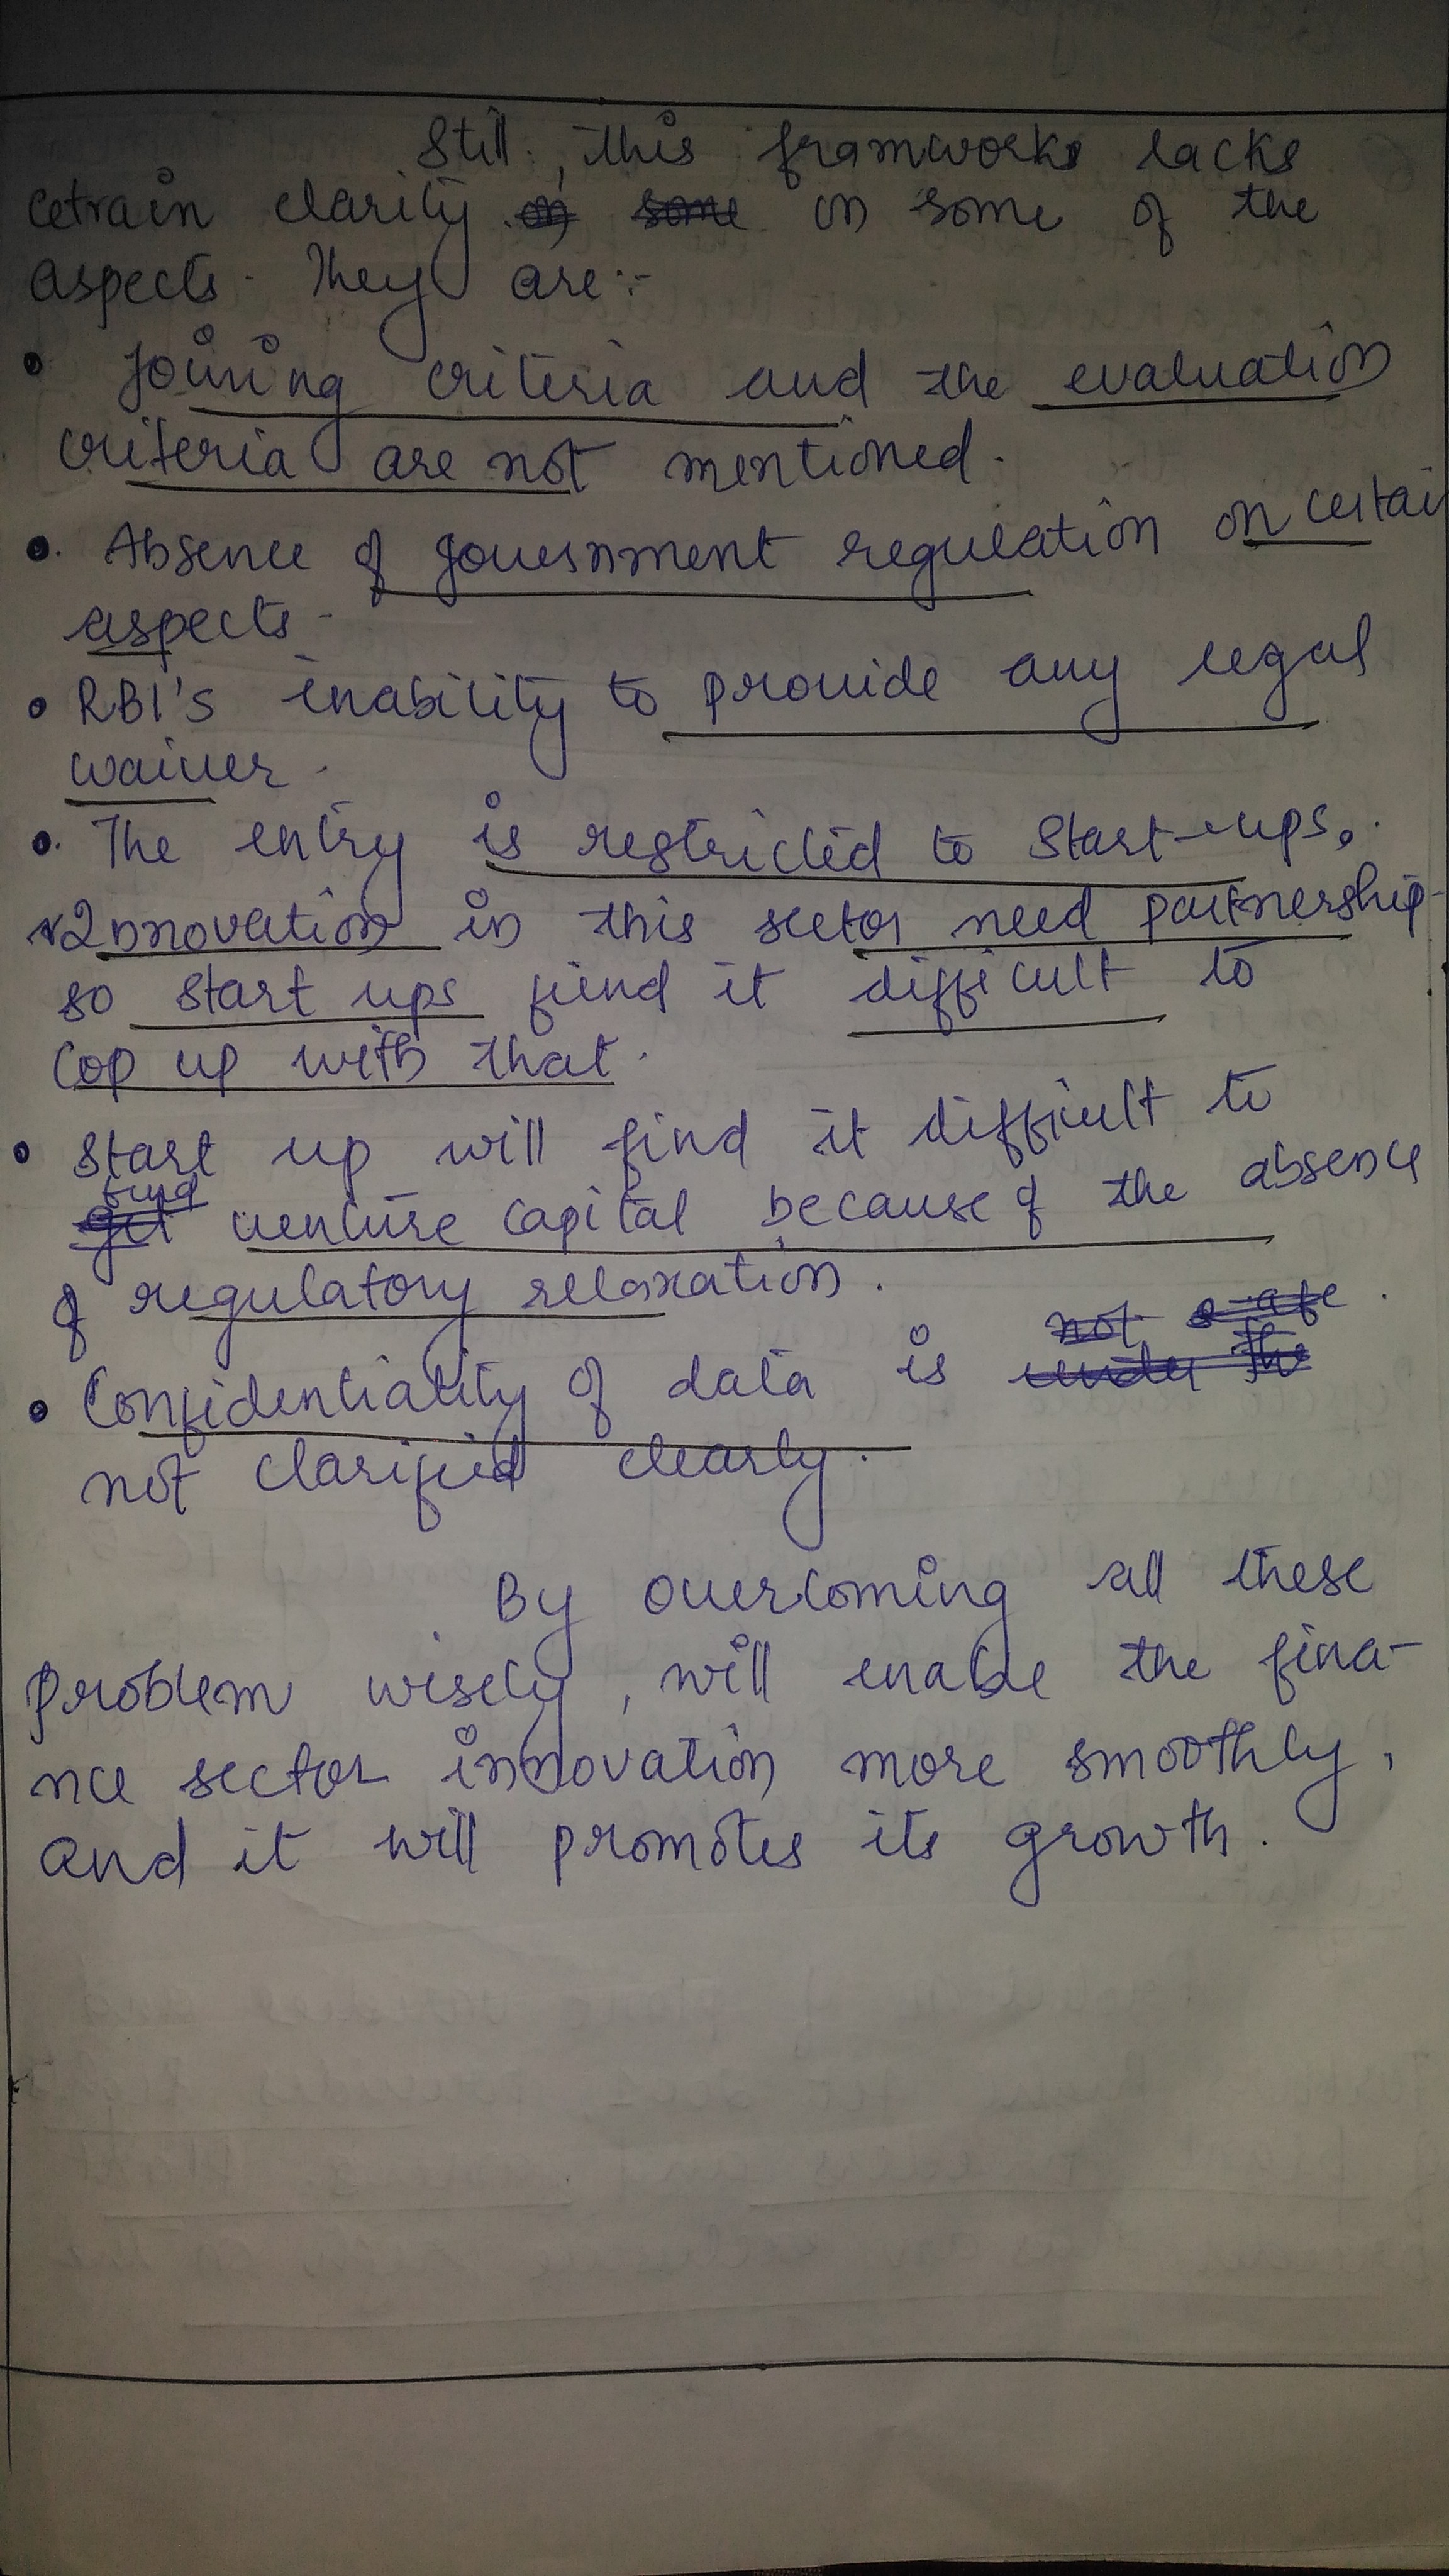 Still, this framworks lacks
cetrain clarity on some of the
aspects. They are:-
• Joining criteria and the evaluation
criteria are not mentioned.
• Absence of government regulation on certai
aspects.
• RBI's inability to provide any legal
waiver.
• The entry is restricted to Start-ups.
Innovation in this sector need partnership
so start ups find it difficult to
cop up with that.
• Start up will find it difficult to
find venture capital because of the absence
of regulatory relaxation.
• Confidentiality of data is
not clarified clearly.
By overcoming all these
problem wisely, will enable the fina-
nce sector innovation more smoothly,
and it will promotes its growth.